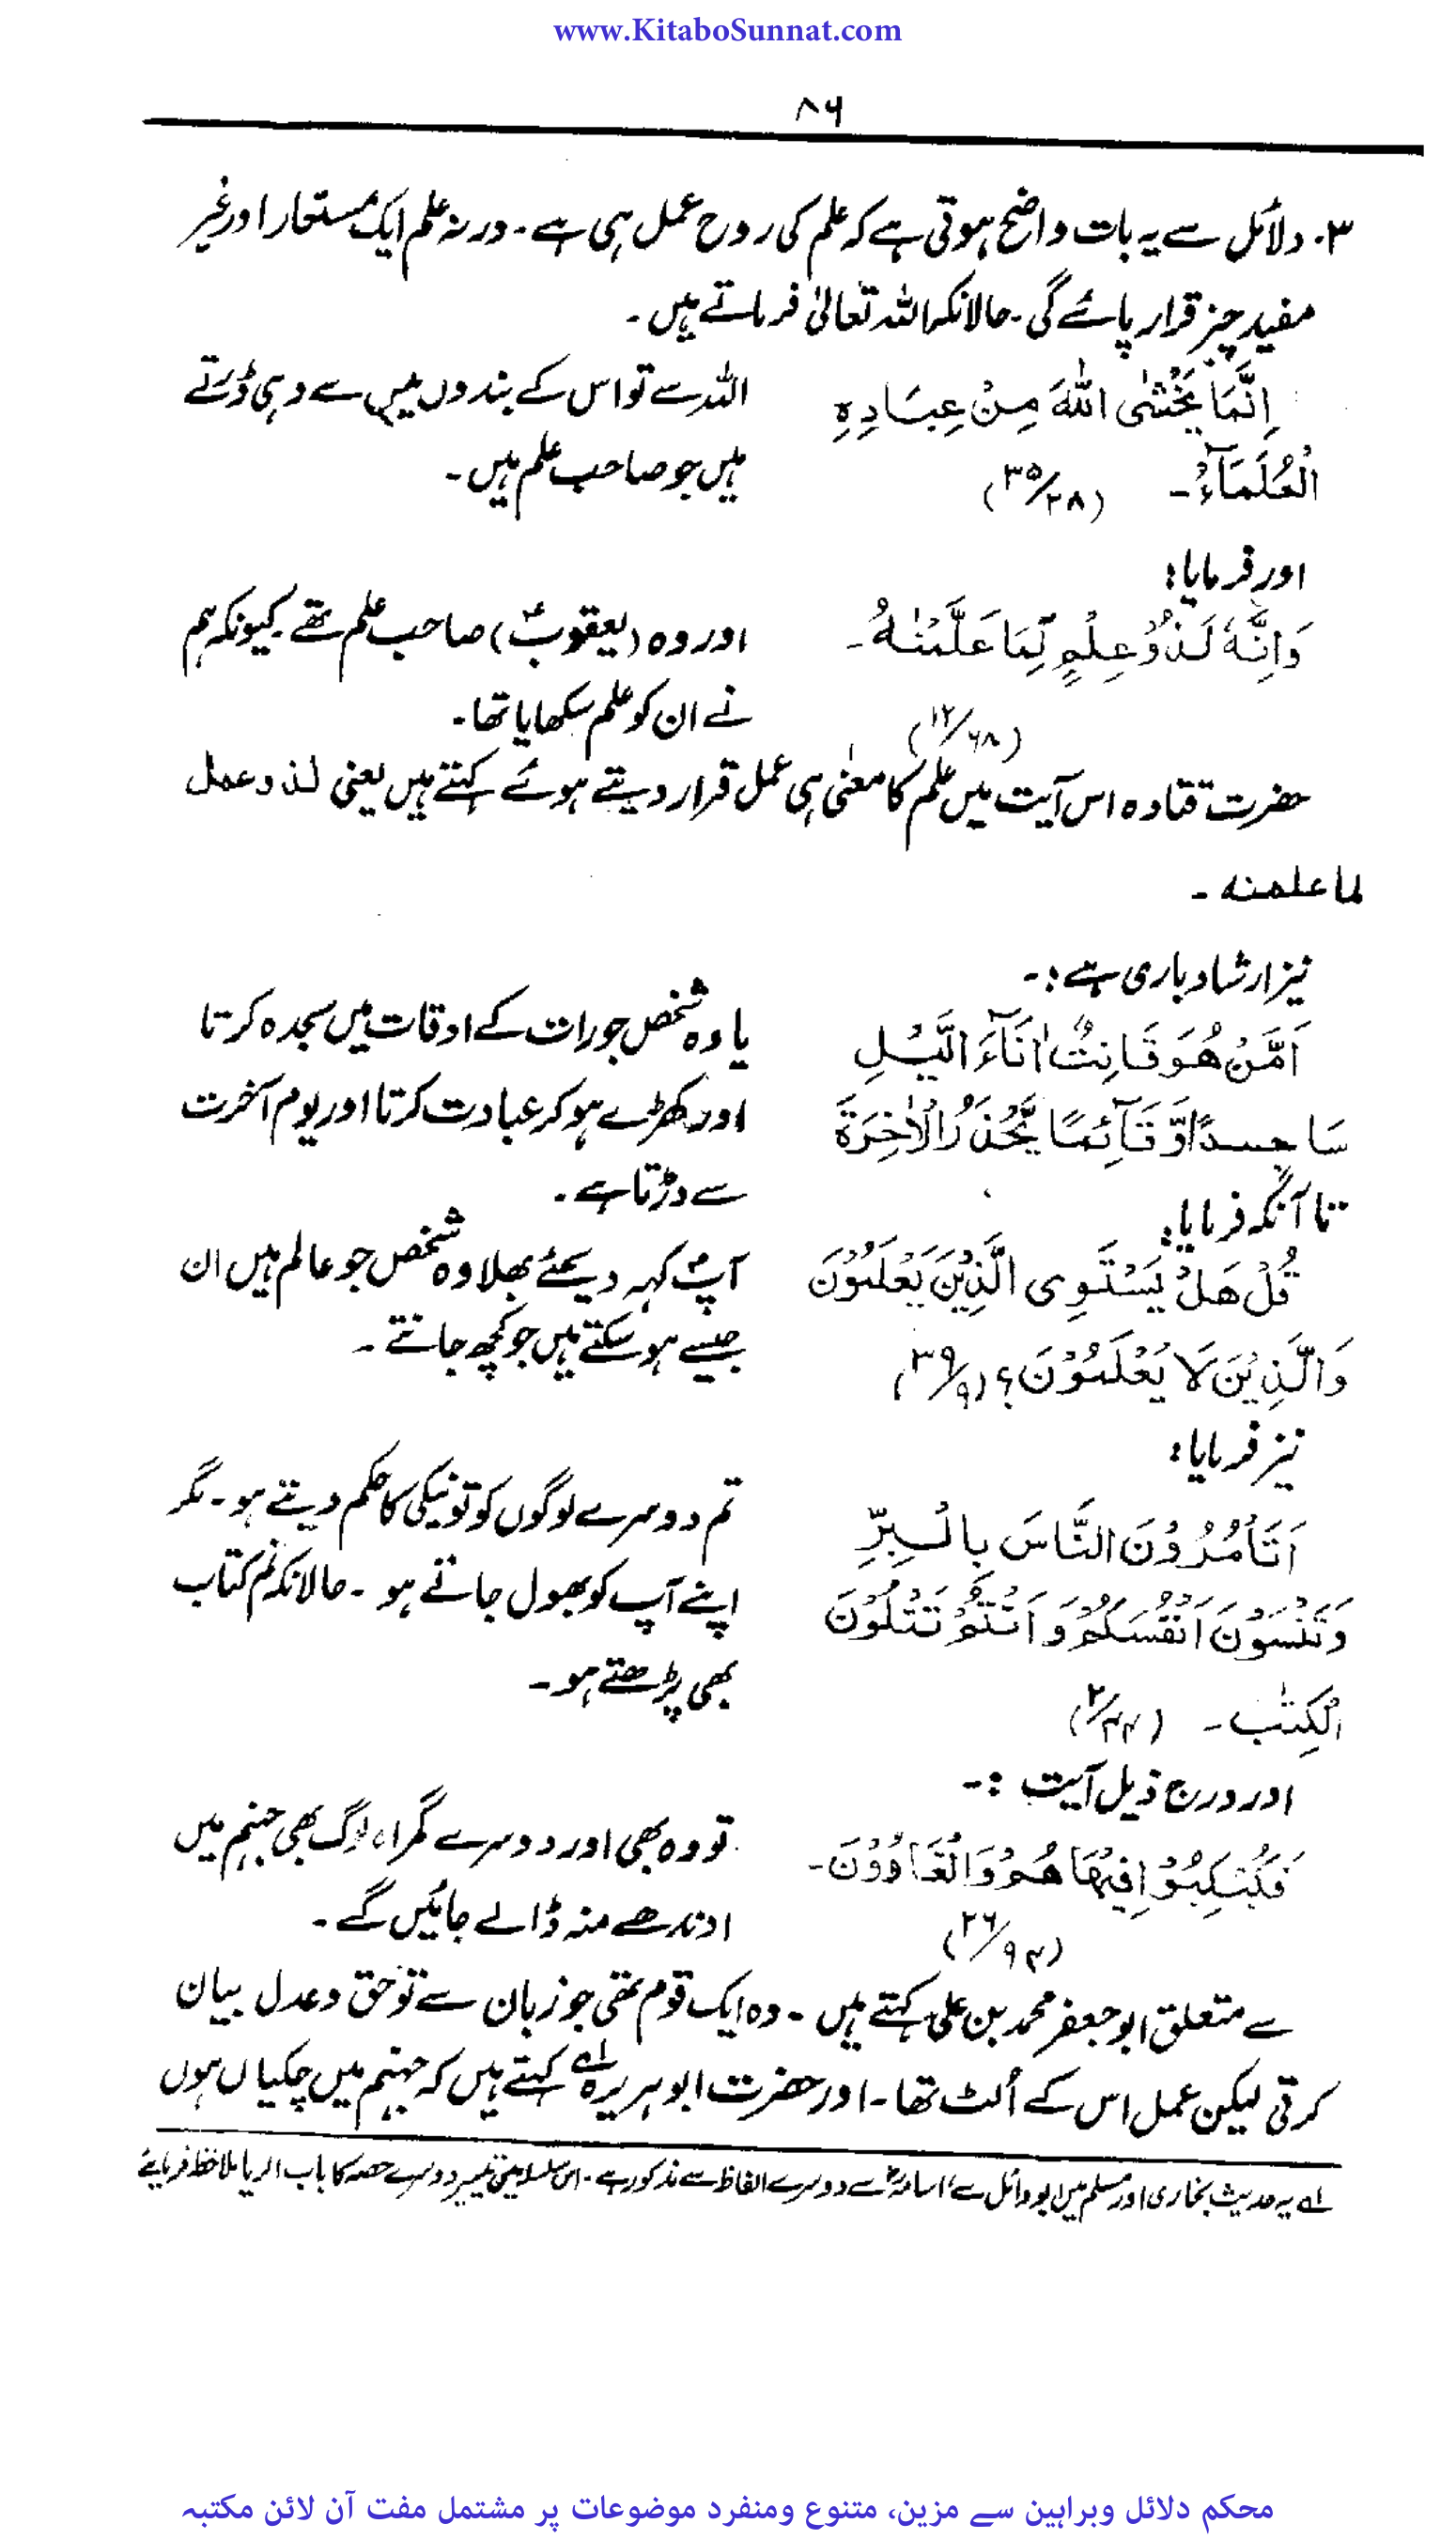 www.KitaboSunnat.com
۸۶
۳. دلائل سے یہ بات واضح ہوتی ہے کہ علم کی روح عمل ہی ہے۔ ورنہ علم ایک مستعار اور غیر
مفید چیز قرار پائے گی۔ حالانکہ اللہ تعالیٰ فرماتے ہیں۔
اِنَّمَا یَخْشَی اللّٰهَ مِنْ عِبَادِهِ
الْعُلَمَآءُ۔ (۳۵/۲۸)
اللہ سے تو اس کے بندوں میں سے وہی ڈرتے
ہیں جو صاحب علم ہیں۔
اور فرمایا:
وَاِنَّهٗ لَذُوْ عِلْمٍ لِّمَا عَلَّمْنٰهُ۔
(۱۲/۶۸)
اور وہ (یعقوبؑ) صاحب علم تھے۔ کیونکہ ہم
نے ان کو علم سکھایا تھا۔
حضرت قتادہ اس آیت میں علم کا معنٰی ہی عمل قرار دیتے ہوئے کہتے ہیں یعنی لذو عمل
لما علمنه ۔
نیز ارشاد باری ہے:۔
اَمَّنْ هُوَ قَانِتٌ اٰنَآءَ الَّیْلِ
سَاجِدًا وَّقَآئِمًا یَّحْذَرُ الْاٰخِرَةَ
یا وہ شخص جو رات کے اوقات میں سجدہ کرتا
اور کھڑے ہو کر عبادت کرتا اور یوم آخرت
سے ڈرتا ہے۔
تا آنکہ فرمایا:
قُلْ هَلْ یَسْتَوِی الَّذِیْنَ یَعْلَمُوْنَ
وَالَّذِیْنَ لَا یَعْلَمُوْنَ؟ (۳۹/۹)
آپؐ کہہ دیجئے بھلا وہ شخص جو عالم ہیں ان
جیسے ہو سکتے ہیں جو کچھ جانتے ۔
نیز فرمایا:
اَتَأْمُرُوْنَ النَّاسَ بِالْبِرِّ
وَتَنْسَوْنَ اَنْفُسَكُمْ وَاَنْتُمْ تَتْلُوْنَ
الْكِتٰبَ۔ (۲/۴۴)
تم دوسرے لوگوں کو تو نیکی کا حکم دیتے ہو۔ مگر
اپنے آپ کو بھول جاتے ہو۔ حالانکہ تم کتاب
بھی پڑھتے ہو۔
اور درج ذیل آیت :۔
فَكُبْكِبُوْا فِیْهَا هُمْ وَالْغَاوٗوْنَ۔
(۲۶/۹۴)
تو وہ بھی اور دوسرے گمراہ لوگ بھی جہنم میں
اوندھے منہ ڈالے جائیں گے۔
سے متعلق ابو جعفر محمد بن علی کہتے ہیں ۔ وہ ایک قوم تھی جو زبان سے تو حق و عدل بیان
کرتی لیکن عمل اس کے اُلٹ تھا۔ اور حضرت ابوہریرہ ؓ کہتے ہیں کہ جہنم میں چکیاں ہوں
لے یہ حدیث بخاری اور مسلم میں ابووائل سے، اسامہؓ سے دوسرے الفاظ سے مذکور ہے۔ اس سلسلہ میں تیسیر دوسرے حصہ کا باب الریا ملاحظہ فرمایئے
محکم دلائل وبراہین سے مزین، متنوع ومنفرد موضوعات پر مشتمل مفت آن لائن مکتبہ